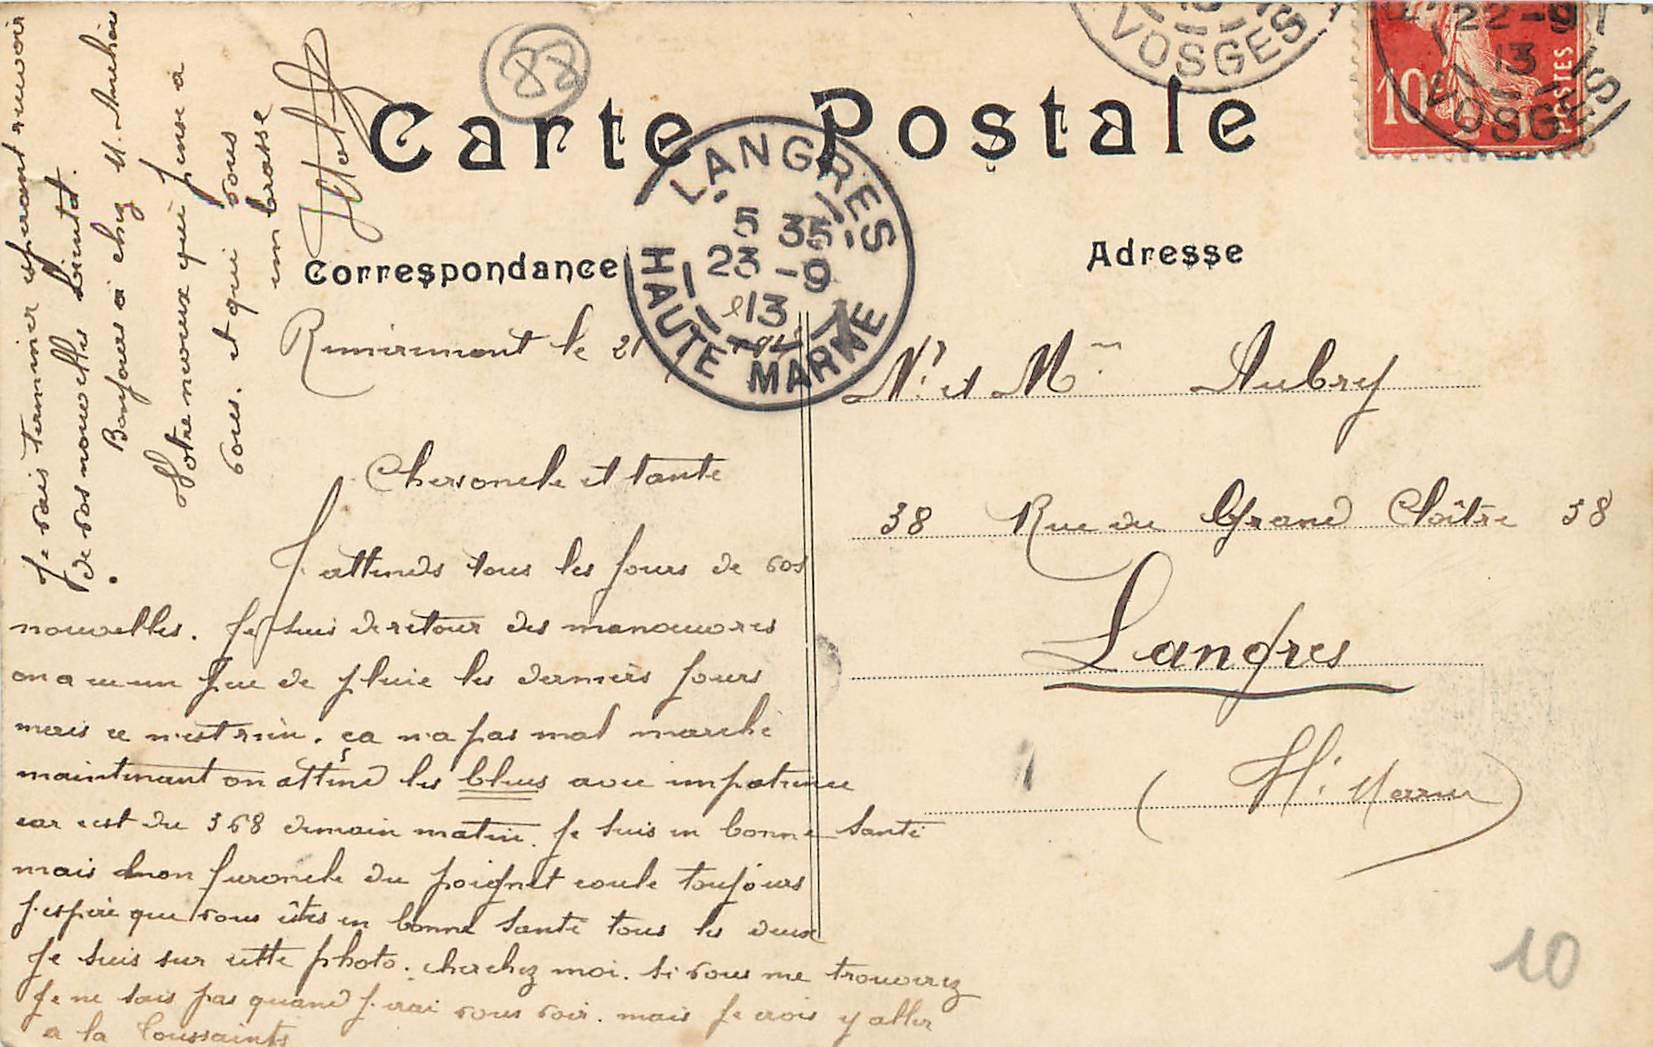 Carte Postale
Correspondance
Adresse
88
VOSGES
22-9
13
VOSGES
10
POSTES
LANGRES
5 35
23-9
13
HAUTE MARNE
Remiremont le 21
Cher oncle et tante
J'attends tous les jours de vos
nouvelles. Je suis de retour des manoeuvres
on a eu un peu de pluie les derniers jours
mais ce n'est rien. ça n'a pas mal marché
maintenant on attend les bleus avec impatience
car c'est du 368 demain matin. Je suis en bonne santé
mais mon furoncle du poignet coule toujours
J'espère que vous êtes en bonne santé tous les deux
Je suis sur cette photo. cherchez moi. si vous me trouverez
Je ne sais pas quand j'irai vous voir. mais je crois y aller
a la Toussaints
Je vais terminer esperant recevoir
de vos nouvelles bientot.
Bonjour à chez M.
Votre neveux qui pense a
vous. et qui vous
embrasse
Mr et Mme Aubry
38 Rue du Grand Cloître 38
Langres
(Hte Marne)
10